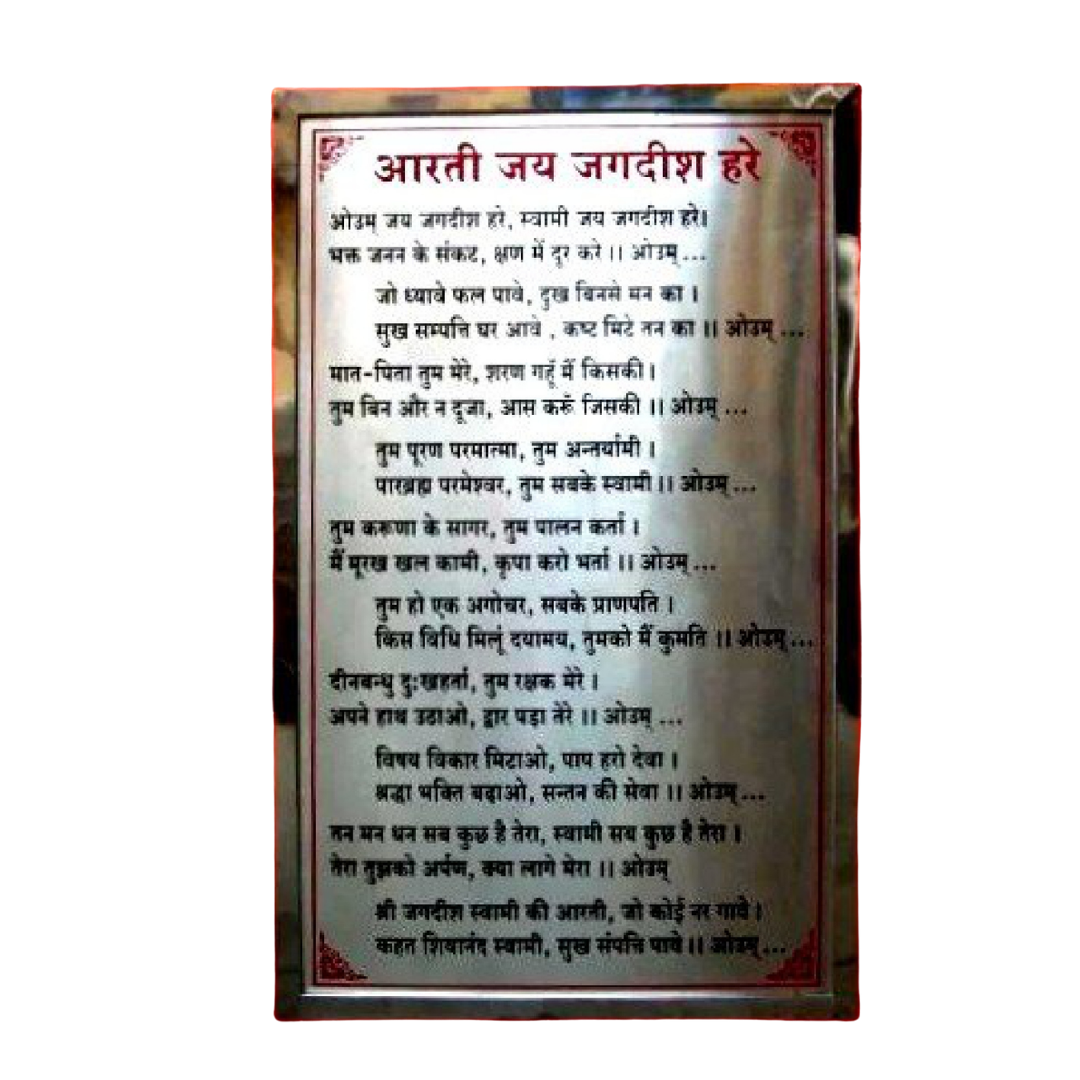 आरती जय जगदीश हरे
ओउम् जय जगदीश हरे, स्वामी जय जगदीश हरे।
भक्त जनन के संकट, क्षण में दूर करे ।। ओउम् ...
जो ध्यावे फल पावे, दुख बिनसे मन का ।
सुख सम्पत्ति घर आवे , कष्ट मिटे तन का ।। ओउम् ...
मात-पिता तुम मेरे, शरण गहूँ मैं किसकी।
तुम बिन और न दूजा, आस करूँ जिसकी ।। ओउम् ...
तुम पूरण परमात्मा, तुम अन्तर्यामी ।
पारब्रह्म परमेश्वर, तुम सबके स्वामी ।। ओउम् ...
तुम करूणा के सागर, तुम पालन कर्ता ।
मैं मूरख खल कामी, कृपा करो भर्ता ।। ओउम् ...
तुम हो एक अगोचर, सबके प्राणपति ।
किस विधि मिलूं दयामय, तुमको मैं कुमति ।। ओउम् ...
दीनबन्धु दुःखहर्ता, तुम रक्षक मेरे ।
अपने हाथ उठाओ, द्वार पड़ा तेरे ।। ओउम् ...
विषय विकार मिटाओ, पाप हरो देवा ।
श्रद्धा भक्ति बढ़ाओ, सन्तन की सेवा ।। ओउम् ...
तन मन धन सब कुछ है तेरा, स्वामी सब कुछ है तेरा ।
तेरा तुझको अर्पण, क्या लागे मेरा ।। ओउम्
श्री जगदीश स्वामी की आरती, जो कोई नर गावे ।
कहत शिवानंद स्वामी, सुख संपत्ति पावे ।। ओउम् ...